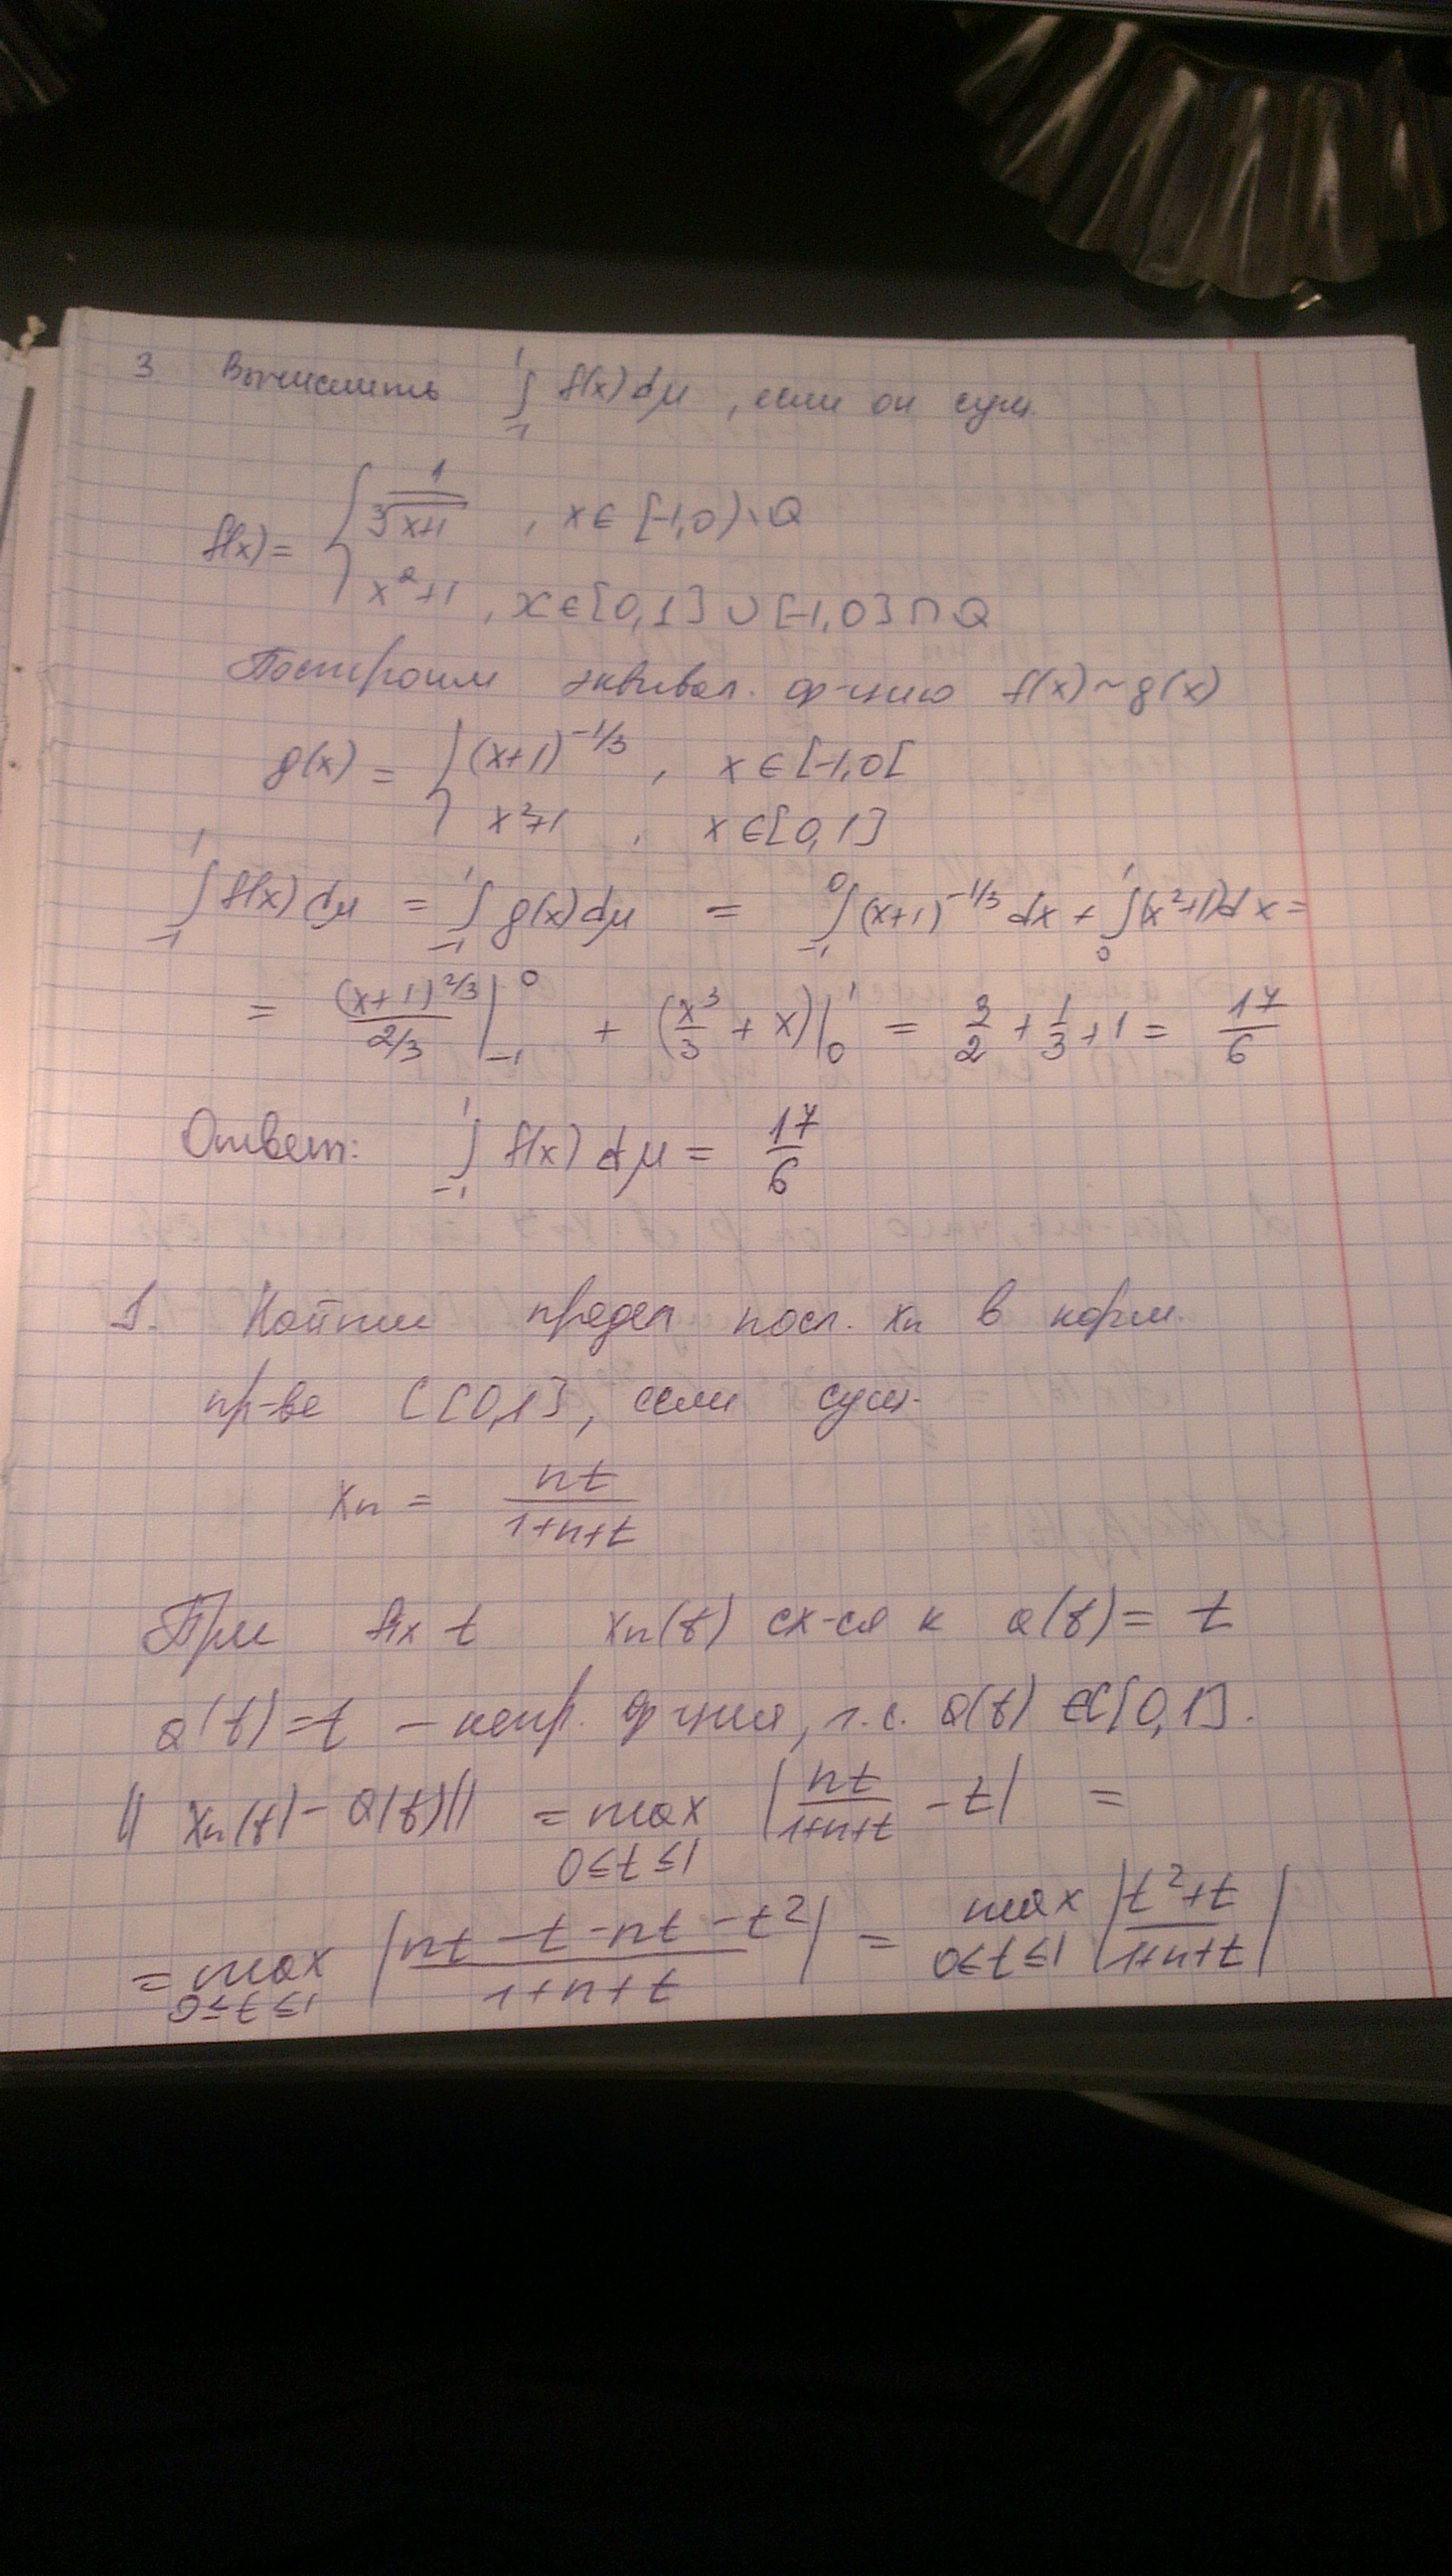 3. Вычислить ∫₋₁¹ f(x)dμ, если он сущ.
f(x) = { 1/∛(x+1), x∈[-1,0)\Q
x²+1, x∈[0,1]∪[-1,0]∩Q
Построим эквивал. ф-цию f(x)~g(x)
g(x) = { (x+1)^(-1/3), x∈[-1,0[
x²+1, x∈[0,1]
∫₋₁¹ f(x)dμ = ∫₋₁¹ g(x)dμ = ∫₋₁⁰ (x+1)^(-1/3) dx + ∫₀¹ (x²+1)dx =
= (x+1)^(2/3)/(2/3) |₋₁⁰ + (x³/3 + x)|₀¹ = 3/2 + 1/3 + 1 = 17/6
Ответ: ∫₋₁¹ f(x)dμ = 17/6
1. Найти предел посл. xₙ в норм.
пр-ве C[0,1], если сущ.
xₙ = nt/(1+n+t)
При fix t xₙ(t) сх-ся к a(t) = t
a(t)=t – непр. ф-ция, т.е. a(t) ∈C[0,1].
|| xₙ(t) - a(t)|| = max 0≤t≤1 | nt/(1+n+t) - t | =
= max 0≤t≤1 | (nt - t - nt - t²)/(1+n+t) | = max 0≤t≤1 | (t²+t)/(1+n+t) |